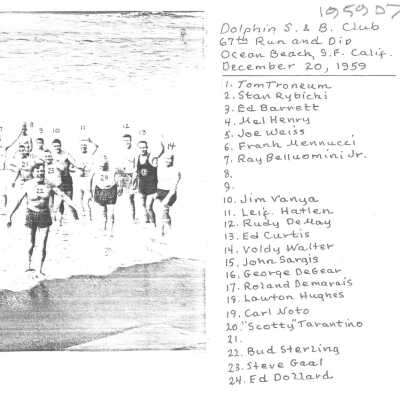 195907
Dolphin S. & B. Club
67th Run and Dip
Ocean Beach, S.F. Calif.
December 20, 1959
1. Tom Troneum
2. Stan Rybicki
3. Ed Barrett
4. Mel Henry
5. Joe Weiss
6. Frank Mennucci
7. Ray Belluomini Jr.
8.
9.
10. Jim Vanya
11. Leif Hatlen
12. Rudy DeMay
13. Ed Curtis
14. Voldy Walter
15. John Sargis
16. George DeGear
17. Roland Demarais
18. Lawton Hughes
19. Carl Noto
20. "Scotty" Tarantino
21.
22. Bud Sterling
23. Steve Gaal
24. Ed Dollard
8
9
10
11
12
13
14